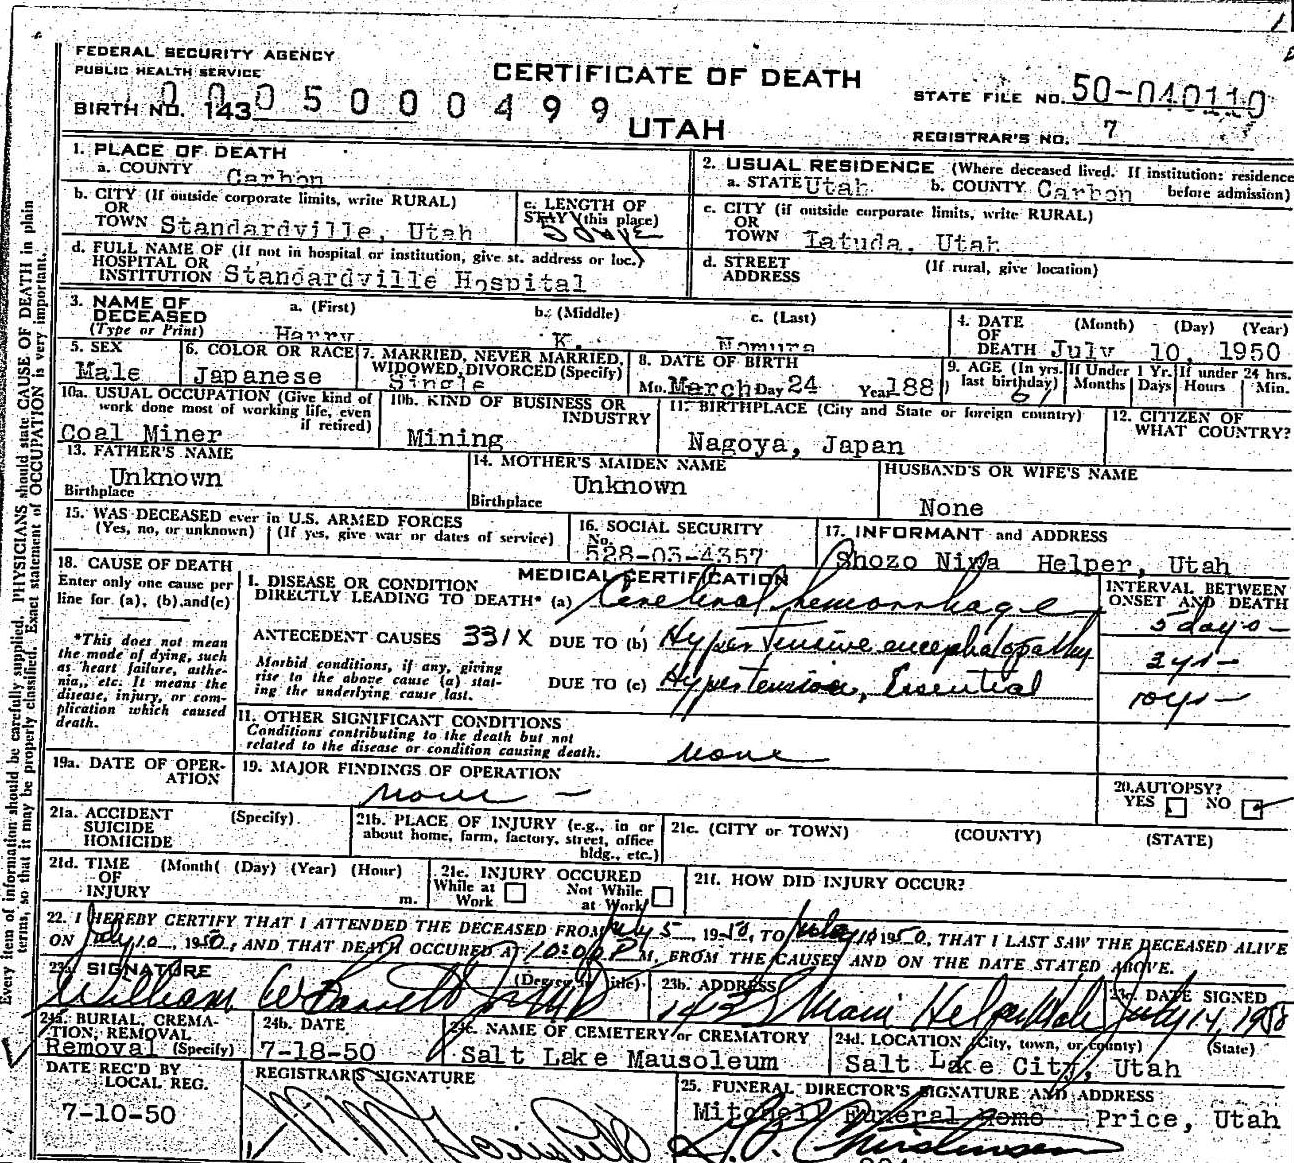 FEDERAL SECURITY AGENCY
PUBLIC HEALTH SERVICE
CERTIFICATE OF DEATH
STATE FILE NO. 50-040110
BIRTH NO. 143 0005000499
UTAH
REGISTRAR'S NO. 7
1. PLACE OF DEATH
a. COUNTY Carbon
2. USUAL RESIDENCE (Where deceased lived. If institution: residence
a. STATE Utah b. COUNTY Carbon before admission)
b. CITY (If outside corporate limits, write RURAL)
OR
TOWN Standardville, Utah
c. LENGTH OF
STAY (this place)
c. CITY (if outside corporate limits, write RURAL)
OR
TOWN Latuda, Utah
d. FULL NAME OF (If not in hospital or institution, give st. address or loc.)
HOSPITAL OR
INSTITUTION Standardville Hospital
d. STREET (If rural, give location)
ADDRESS
3. NAME OF
DECEASED
(Type or Print)
a. (First) b. (Middle) c. (Last)
Harry K. Nomura
4. DATE (Month) (Day) (Year)
OF
DEATH July 10, 1950
5. SEX
Male
6. COLOR OR RACE
Japanese
7. MARRIED, NEVER MARRIED,
WIDOWED, DIVORCED (Specify)
Single
8. DATE OF BIRTH
Mo. March Day 24 Year 188
9. AGE (In yrs. last birthday)
If Under 1 Yr. Months Days
If under 24 hrs. Hours Min.
10a. USUAL OCCUPATION (Give kind of
work done most of working life, even
if retired)
Coal Miner
10b. KIND OF BUSINESS OR
INDUSTRY
Mining
11. BIRTHPLACE (City and State or foreign country)
Nagoya, Japan
12. CITIZEN OF
WHAT COUNTRY?
13. FATHER'S NAME
Unknown
Birthplace
14. MOTHER'S MAIDEN NAME
Unknown
Birthplace
HUSBAND'S OR WIFE'S NAME
None
15. WAS DECEASED ever in U.S. ARMED FORCES
(Yes, no, or unknown) (If yes, give war or dates of service)
16. SOCIAL SECURITY
No.
528-03-4357
17. INFORMANT and ADDRESS
Shozo Niwa Helper, Utah
18. CAUSE OF DEATH
Enter only one cause per
line for (a), (b), and (c)
*This does not mean
the mode of dying, such
as heart failure, asthe-
nia, etc. It means the
disease, injury, or com-
plication which caused
death.
MEDICAL CERTIFICATION
I. DISEASE OR CONDITION
DIRECTLY LEADING TO DEATH* (a) Cerebral hemorrhage
INTERVAL BETWEEN
ONSET AND DEATH
5 days -
ANTECEDENT CAUSES 331X DUE TO (b) Hypertensive encephalopathy
2 yrs -
Morbid conditions, if any, giving
rise to the above cause (a) stat-
ing the underlying cause last.
DUE TO (c) Hypertension, Essential
10 yrs -
II. OTHER SIGNIFICANT CONDITIONS
Conditions contributing to the death but not
related to the disease or condition causing death.
None
19a. DATE OF OPER-
ATION
19. MAJOR FINDINGS OF OPERATION
None -
20. AUTOPSY?
YES NO
21a. ACCIDENT (Specify)
SUICIDE
HOMICIDE
21b. PLACE OF INJURY (e.g., in or
about home, farm, factory, street, office
bldg., etc.)
21c. (CITY or TOWN) (COUNTY) (STATE)
21d. TIME (Month( (Day) (Year) (Hour)
OF
INJURY m.
21e. INJURY OCCURED
While at Work
Not While at Work
21f. HOW DID INJURY OCCUR?
22. I HEREBY CERTIFY THAT I ATTENDED THE DECEASED FROM July 5, 1950, TO July 10 1950, THAT I LAST SAW THE DECEASED ALIVE
ON July 10, 1950, AND THAT DEATH OCCURED AT 10:00 P M, FROM THE CAUSES AND ON THE DATE STATED ABOVE.
23a. SIGNATURE (Degree, Title)
William
23b. ADDRESS
S Main Helper Utah
23c. DATE SIGNED
July 14, 1950
24a. BURIAL, CREMA-
TION, REMOVAL
Removal (Specify)
24b. DATE
7-18-50
24c. NAME OF CEMETERY or CREMATORY
Salt Lake Mausoleum
24d. LOCATION (City, town, or county) (State)
Salt Lake City, Utah
DATE REC'D BY
LOCAL REG.
7-10-50
REGISTRAR'S SIGNATURE
25. FUNERAL DIRECTOR'S SIGNATURE AND ADDRESS
Mitchell Funeral Home Price, Utah
Christensen
Every item of information should be carefully supplied. PHYSICIANS should state CAUSE OF DEATH in plain
terms, so that it may be properly classified. Exact statement of OCCUPATION is very important.